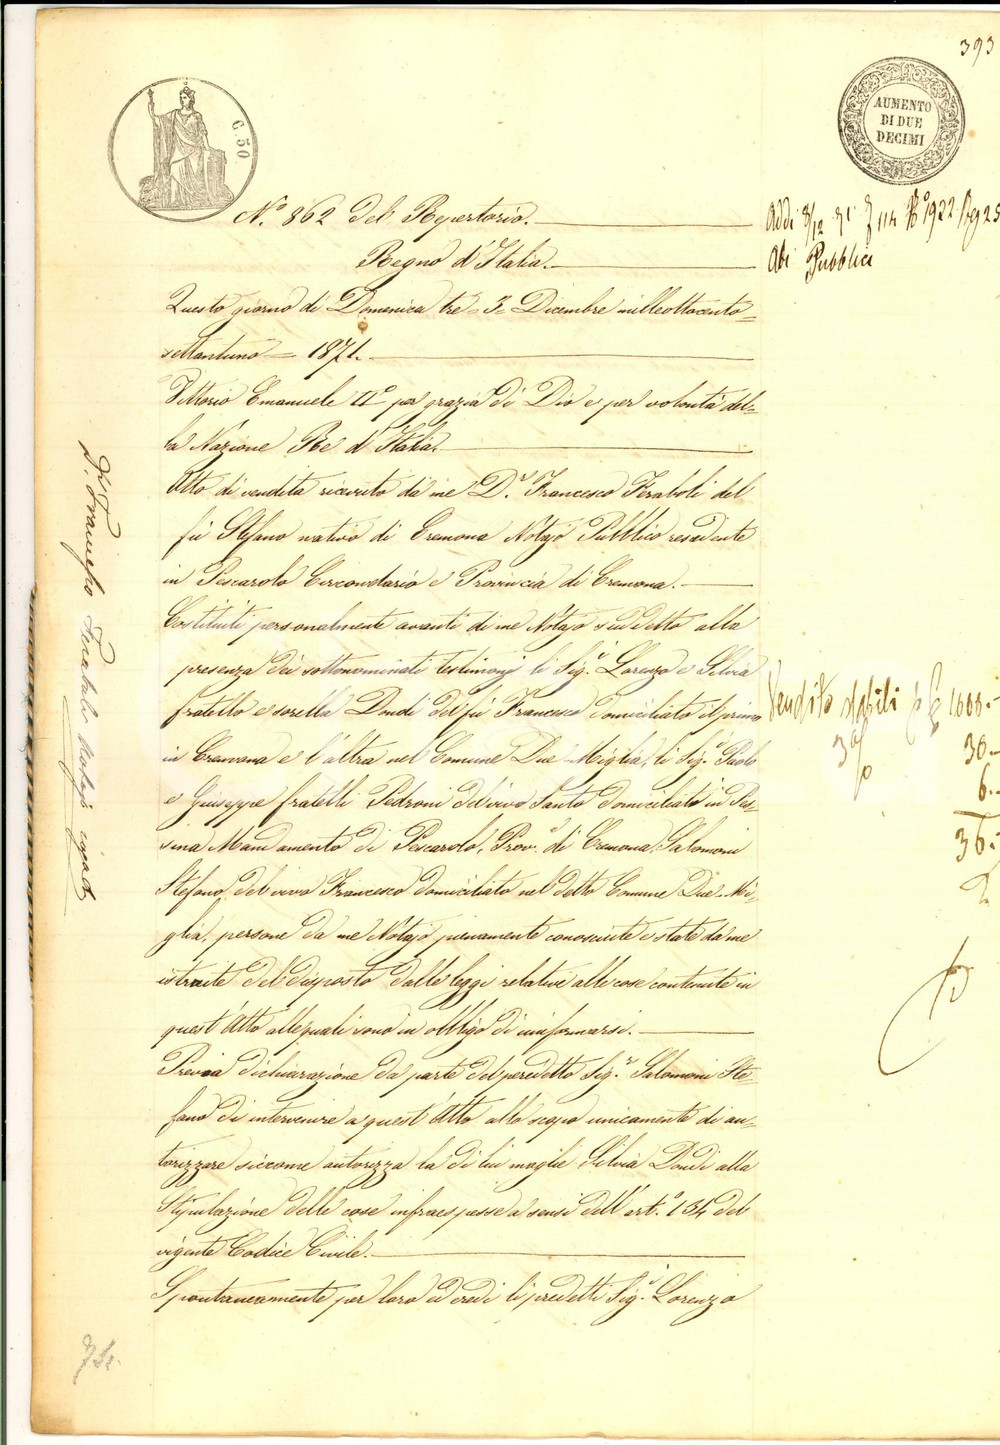 393
C. 50
AUMENTO
DI DUE
DECIMI
N.° 862 del Repertorio.
Regno d'Italia.
Addi 8/12 71
Atti Pubblici
Questo giorno di Domenica tre = 3 = Dicembre milleottocento=
settantuno = 1871.
Vittorio Emanuele II° per grazia di Dio e per volontà del=
la Nazione Re d'Italia.
Atto di vendita ricevuto da me D.r Francesco Feraboli del
fu Stefano nativo di Cremona Notajo Pubblico residente
in Pescarolo Circondario e Provincia di Cremona.
Costituiti personalmente avanti di me Notajo suddetto alla
presenza dei sottonominati testimonj li Sig.i Lorenzo e Silvia
fratello e sorella Dondi del fu Francesco domiciliato il primo
in Cremona e l'altra nel Comune Due Miglia, li Sig.i Paolo
e Giuseppe fratelli Pedroni del vivo Santo domiciliati in Pes=
sina Mandamento di Pescarolo, Prov.a di Cremona, Salomoni
Stefano del vivo Francesco domiciliato nel detto Comune Due Mi=
glia, persone da me Notajo pienamente conosciute e state da me
istruite del disposto dalle leggi relative alle cose contenute in
quest'Atto alle quali sono in obbligo di uniformarsi.
Previa dichiarazione da parte del predetto Sig.r Salomoni Ste=
fano di intervenire a quest'Atto allo scopo unicamente di au=
torizzare siccome autorizza la di lui moglie Silvia Dondi alla
stipulazione delle cose infraespresse a sensi dell'art.° 134 del
vigente Codice Civile.
Spontaneamente per loro ed eredi li predetti Sig.i Lorenzo
Vendita Mobili 1000.-
3 %
30.-
6.-
36.-
D.r Francesco Feraboli Notajo